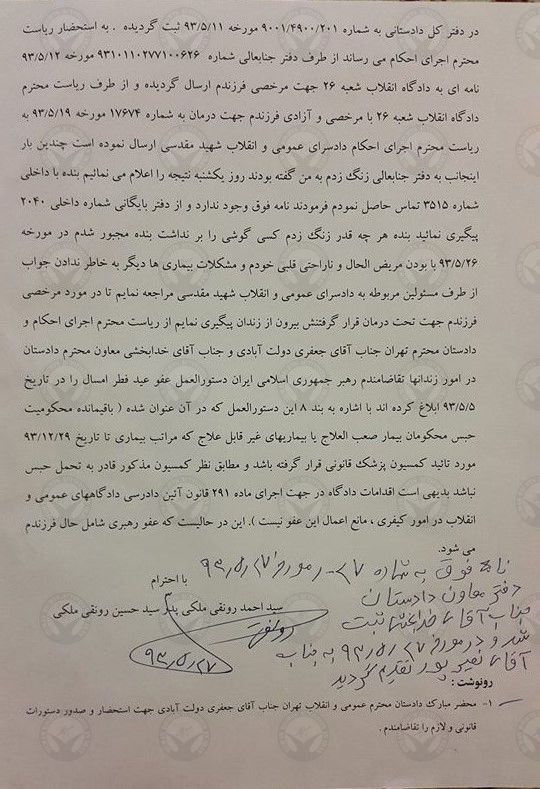 در دفتر کل دادستانی به شماره ۹۰۰۱/۴۹۰۰/۲۰۱ مورخه ۹۳/۵/۱۱ ثبت گردیده . به استحضار ریاست
محترم اجرای احکام می رساند از طرف دفتر جنابعالی شماره ۹۳۱۰۱۱۰۲۷۷۱۰۰۶۲۶ مورخه ۹۳/۵/۱۲
نامه ای به دادگاه انقلاب شعبه ۲۶ جهت مرخصی فرزندم ارسال گردیده و از طرف ریاست محترم
دادگاه انقلاب شعبه ۲۶ با مرخصی و آزادی فرزندم جهت درمان به شماره ۱۷۶۷۴ مورخه ۹۳/۵/۱۹ به
ریاست محترم اجرای احکام دادسرای عمومی و انقلاب شهید مقدسی ارسال نموده است چندین بار
اینجانب به دفتر جنابعالی زنگ زدم به من گفته بودند روز یکشنبه نتیجه را اعلام می نمائیم بنده با داخلی
شماره ۳۵۱۵ تماس حاصل نمودم فرمودند نامه فوق وجود ندارد و از دفتر بایگانی شماره داخلی ۲۰۴۰
پیگیری نمائید بنده هر چه قدر زنگ زدم کسی گوشی را بر نداشت بنده مجبور شدم در مورخه
۹۳/۵/۲۶ با بودن مریض الحال و ناراحتی قلبی خودم و مشکلات بیماری ها دیگر به خاطر ندادن جواب
از طرف مسئولین مربوطه به دادسرای عمومی و انقلاب شهید مقدسی مراجعه نمایم تا در مورد مرخصی
فرزندم جهت تحت درمان قرار گرفتنش بیرون از زندان پیگیری نمایم از ریاست محترم اجرای احکام و
دادستان محترم تهران جناب آقای جعفری دولت آبادی و جناب آقای خدابخشی معاون محترم دادستان
در امور زندانها تقاضامندم رهبر جمهوری اسلامی ایران دستورالعمل عفو عید فطر امسال را در تاریخ
۹۳/۵/۵ ابلاغ کرده اند با اشاره به بند ۸ این دستورالعمل که در آن عنوان شده ( باقیمانده محکومیت
حبس محکومان بیمار صعب العلاج یا بیماریهای غیر قابل علاج که مراتب بیماری تا تاریخ ۹۳/۱۲/۲۹
مورد تائید کمسیون پزشک قانونی قرار گرفته باشد و مطابق نظر کمسیون مذکور قادر به تحمل حبس
نباشد بدیهی است اقدامات دادگاه در جهت اجرای ماده ۲۹۱ قانون آئین دادرسی دادگاههای عمومی و
انقلاب در امور کیفری ، مانع اعمال این عفو نیست ). این در حالیست که عفو رهبری شامل حال فرزندم
می شود.
با احترام
سید احمد رونقی ملکی پدر سید حسین رونقی ملکی
۹۳/۵/۲۷
نامه فوق به شماره مورخه ۹۳/۵/۲۷
دفتر معاون دادستان
جناب آقای خدابخشی ثبت
شد و در مورخه ۹۳/۵/۲۷ به جناب
آقای نصیرپور تقدیم گردید
رونوشت :
۱- محضر مبارک دادستان محترم عمومی و انقلاب تهران جناب آقای جعفری دولت آبادی جهت استحضار و صدور دستورات
قانونی و لازم را تقاضامندم .